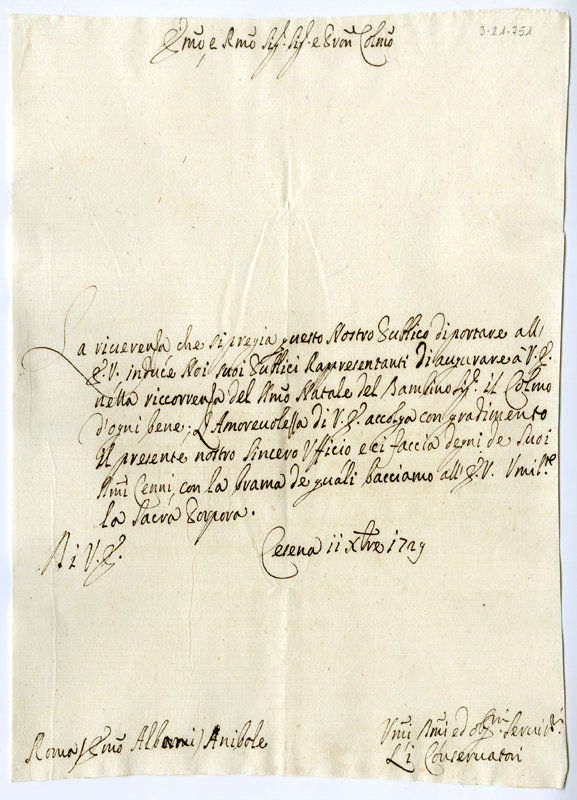 3-21-751
Emõ, e Rmõ Sig.r Sig.r e Pron Colmõ
La riverenza che si pregia questo Nostro Publico di portare all'
E.V. induce Noi suoi Publici Rappresentanti di augurare à V.E.
nella riccorrenza del Smõ Natale del Bambino Giesù il Colmo
d'ogni bene; L'Amorevolezza di V.E. accolga con gradimento
il presente nostro sincero Ufficio e ci faccia degni de suoi
Smi Cenni, con la brama de quali bacciamo all'E.V. Umil.te
la Sacra Porpora.
Di V.E.
Cesena 11 Xbre 1729
Roma / Emõ Albani / Anibale
Umi Dmi ed obm Servit.ri
Li Conservatori